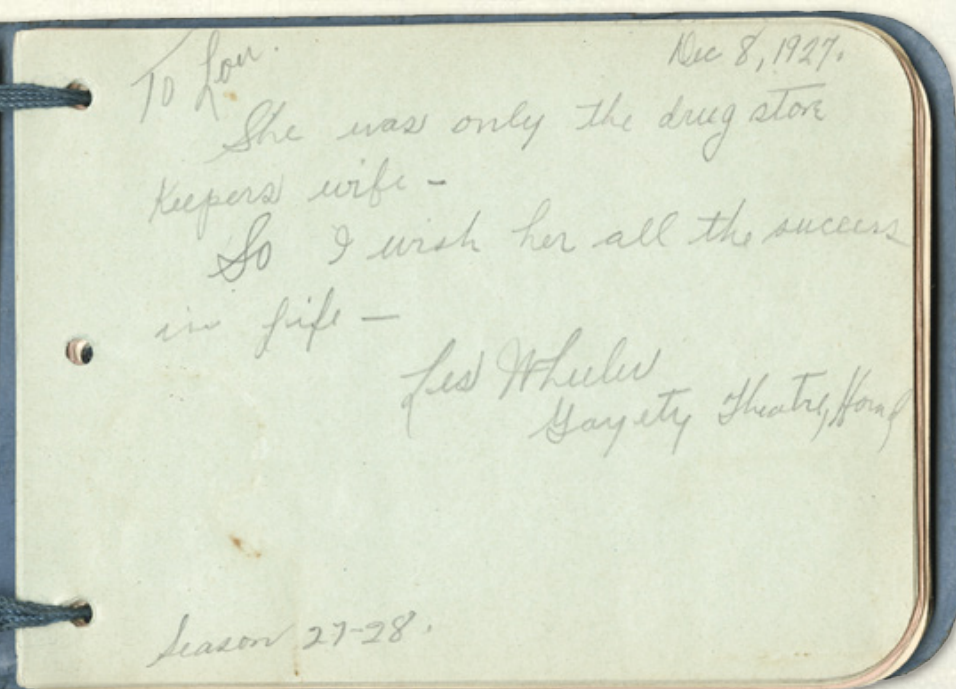 To Lou.
Dec 8, 1927.
She was only the drug store
Keepers wife -
So I wish her all the success
in life -
Les Wheeler
Gayety Theatre,
Season 27-28.